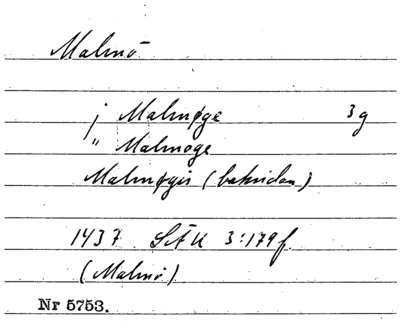 Malmö
j Malmøge 3 g
" Malmoge
Malmøgis (baksidan)
1437 SÄU 3:179 f
(Malmö)
Nr 5753.